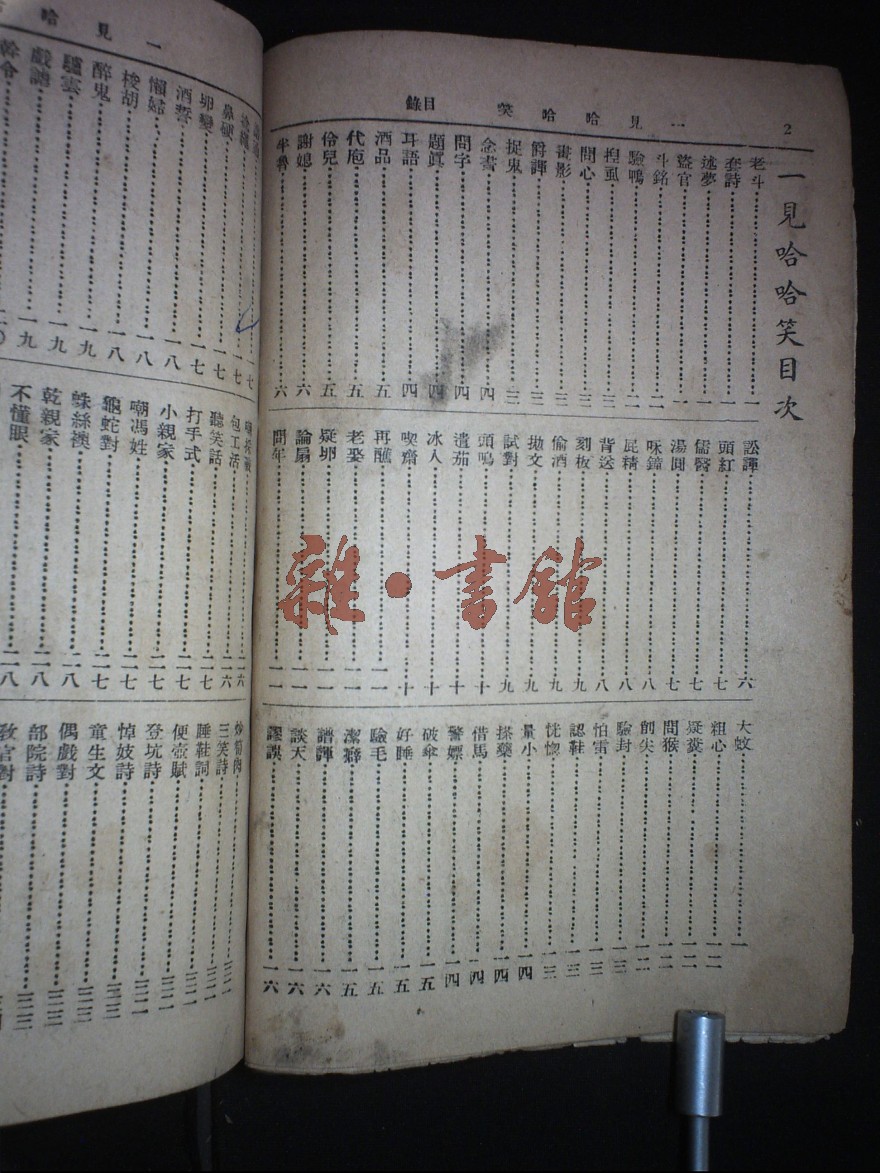 一見哈哈笑　目錄
2
一見哈哈笑目次
老斗……一
套詩……一
述夢……一
盜官……一
斗銘……二
驗鴨……二
捏虱……三
問心……三
畫影……三
爵譚……三
捉鬼……三
念書……四
問字……四
題眞……四
耳語……四
酒品……五
代庖……五
伶兒……五
謝媳……六
半魯……六
訟譚……六
頭紅……七
儒醫……七
湯圓……七
咊鐘……七
屁精……八
背送……八
刻板……九
偷酒……九
拋文……九
試對……九
頭鳴……十
遺茄……十
冰人……十
喫齋……十
再醮……一一
老娶……一一
疑卵……一一
論扇……一一
問年……一一
大蚊……一
粗心……一二
疑糞……一二
問猴……一二
創尖……一二
驗封……一三
怕雷……一三
認鞋……一三
恍惚……一三
量小……一四
搽藥……一四
借馬……一四
警嫖……一四
破傘……一五
好睡……一五
驗毛……一五
潔癖……一五
譜譚……一六
談天……一六
謬誤……一六
一見哈
鼻硬……一七
卵變……一七
酒誓……一八
懶婦……一八
梭胡……一八
醉鬼……一九
驢雲……一九
戲謔……一九
包工活……二六
聽笑話……二七
打手式……二七
小親家……二七
嘲馮姓……二七
龜蛇對……二七
蛛絲襖……二八
乾親家……二八
不懂眼……二八
炒筍肉
三笑詩
睡鞋詞
便壺賦
登坑詩
悼妓詩
童生文
偶戲對
部院詩
教官對
雜·書館